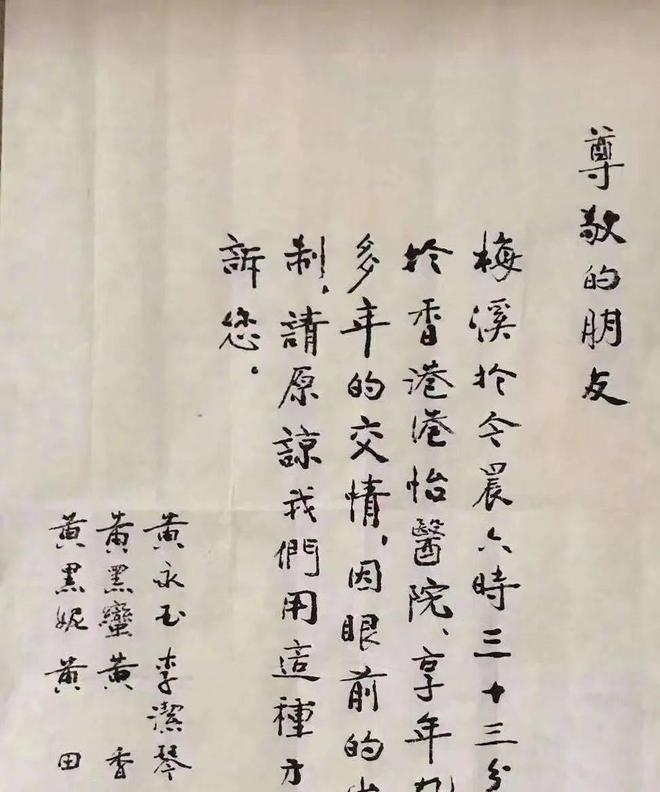 尊敬的朋友
梅溪於今晨六時三十三分
於香港港怡醫院、享年
多年的交情,因眼前的
制,請原諒我們用這種方
訴您。
黄永玉 李潔琴
黄黑蠻 黄香
黄黑妮 黄田